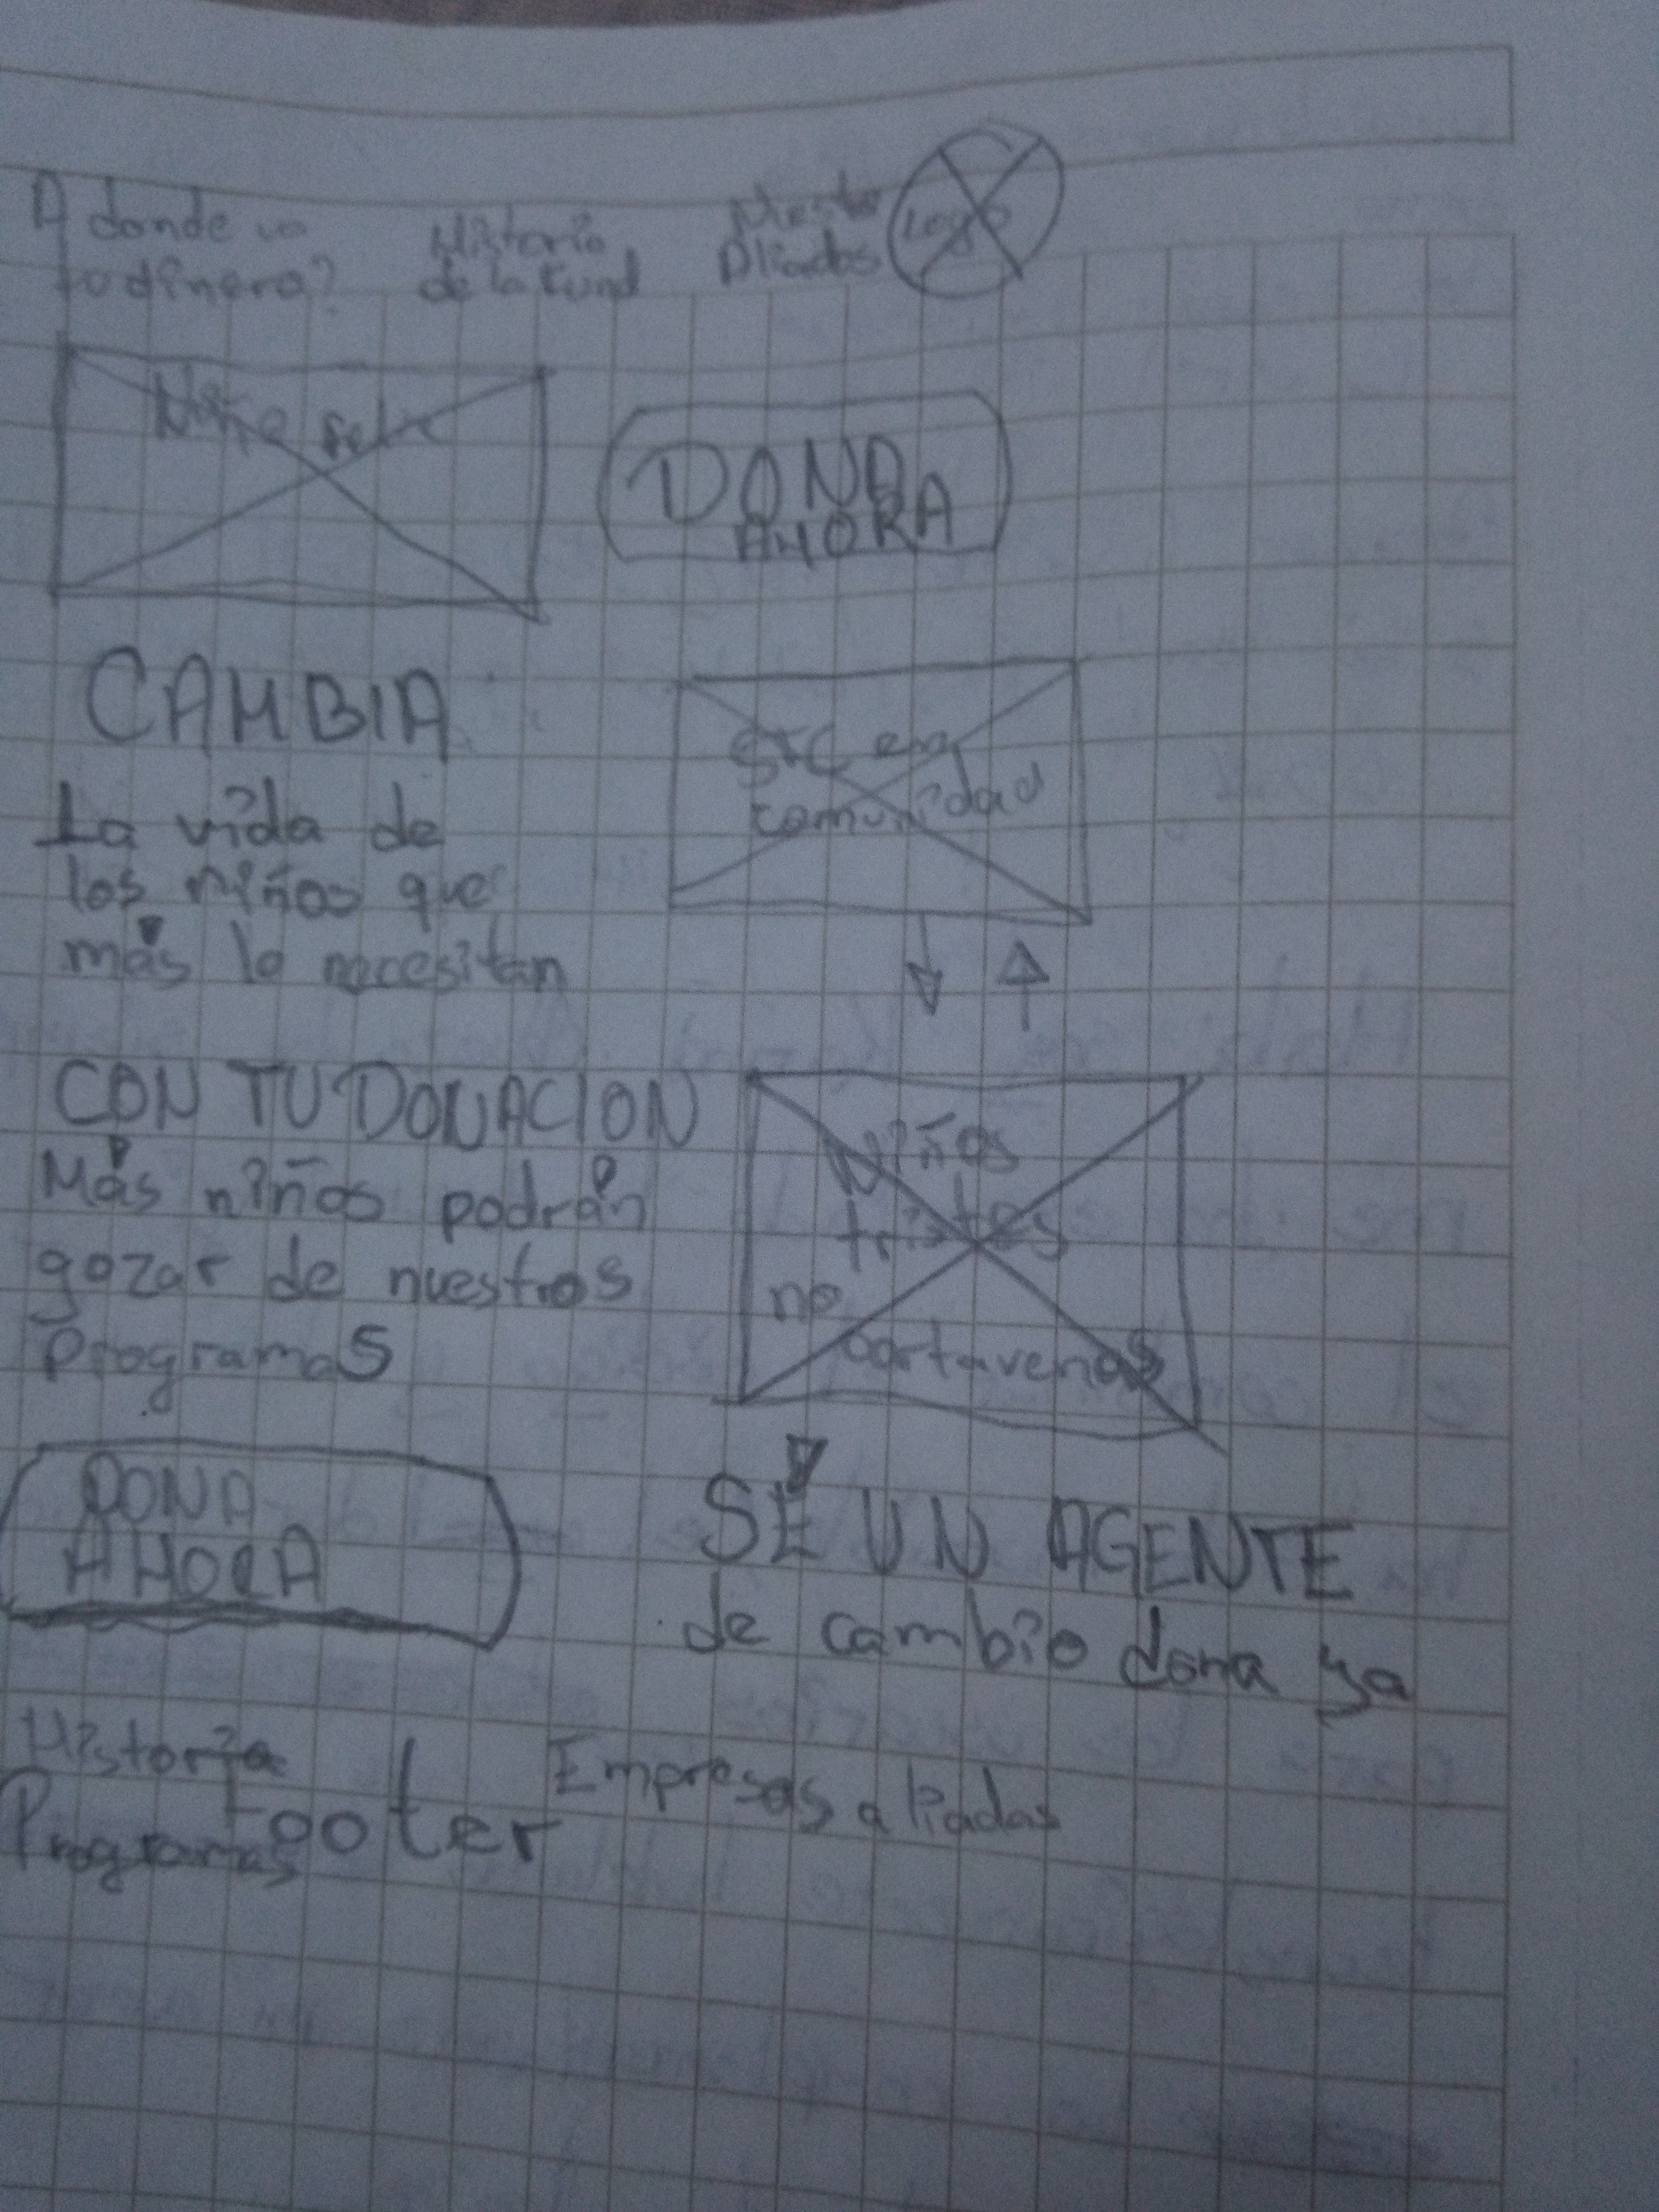 A donde va
tu dinero?
Historia
de la fund
Aliados
Logo
DONA
AHORA
CAMBIA
La vida de
los niños que
más lo necesitan
en
comunidad
CON TU DONACION
Más niños podrán
gozar de nuestros
Programas
Niños
tristes
no
cortavenas
DONA
AHORA
SÉ UN AGENTE
de cambio dona ya
Historia
Programas
Footer
Empresas aliadas